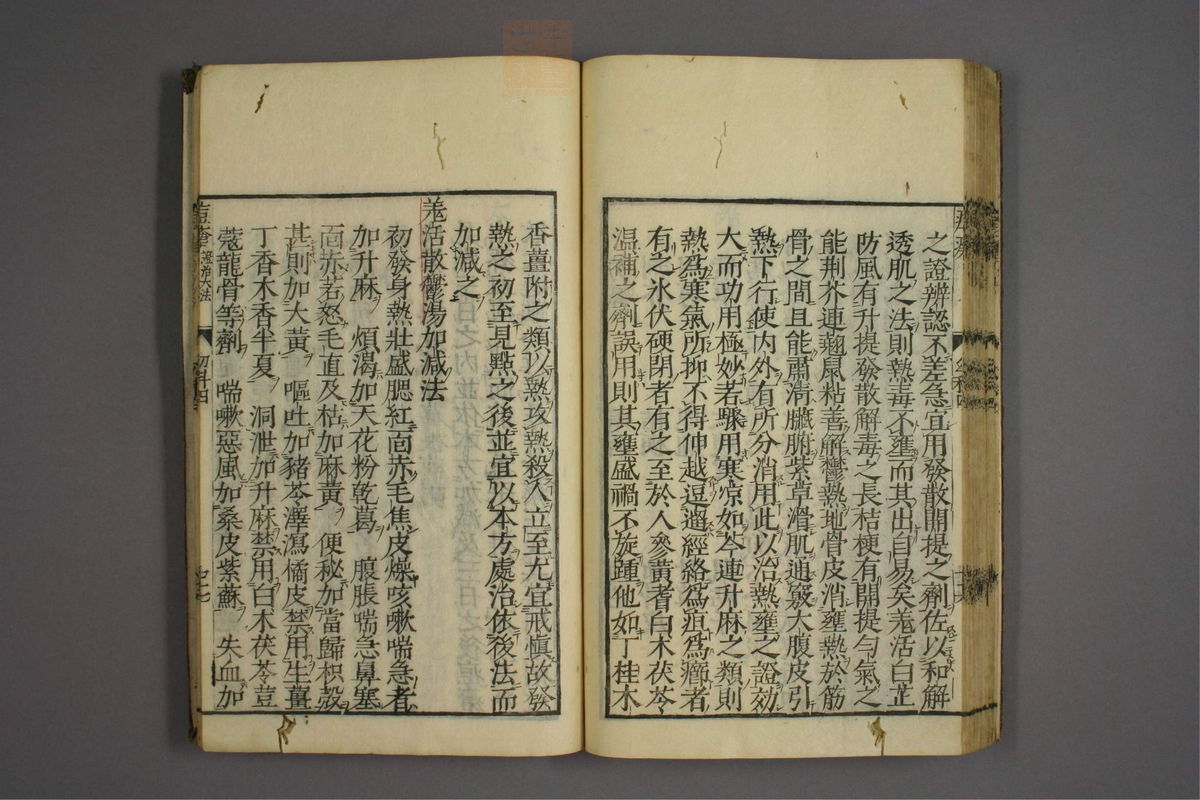 之證辨認不差急宜用發散開提之劑佐以和解
透肌之法則熱毒不壅而其出自易矣羗活白芷
防風有升提發散解毒之長桔梗有開提勻氣之
能荆芥連翹鼠粘善解鬱熱地骨皮消壅熱於筋
骨之間且能肅清臟腑紫草滑肌通竅大腹皮引
熱下行使内外有所分消用此以治熱壅之證効
大而功用極妙若驟用寒凉如芩連升麻之類則
熱爲寒氣所抑不得伸越逗遛經絡爲疽爲癤者
有之氷伏硬閉者有之至於人參黄耆白术茯苓
温補之劑誤用則其壅盛禍不旋踵他如丁桂木
香薑附之類以熱攻熱殺人立至尤宜戒慎故發
熱之初至見點之後並宜以本方處治依後法而
加減之
羗活散鬱湯加減法
初發身熱壯盛腮紅面赤毛焦皮燥咳嗽喘急者
加升麻　煩渴加天花粉乾葛　腹脹喘急鼻塞
面赤若怒毛直及枯加麻黄　便秘加當歸枳殻
甚則加大黄　嘔吐加豬苓澤瀉橘皮禁用生薑
丁香木香半夏　洞泄加升麻禁用白术茯苓荳
蔻龍骨等劑　喘嗽惡風加桑皮紫蘇　失血加
痘疹證治大法
初科四